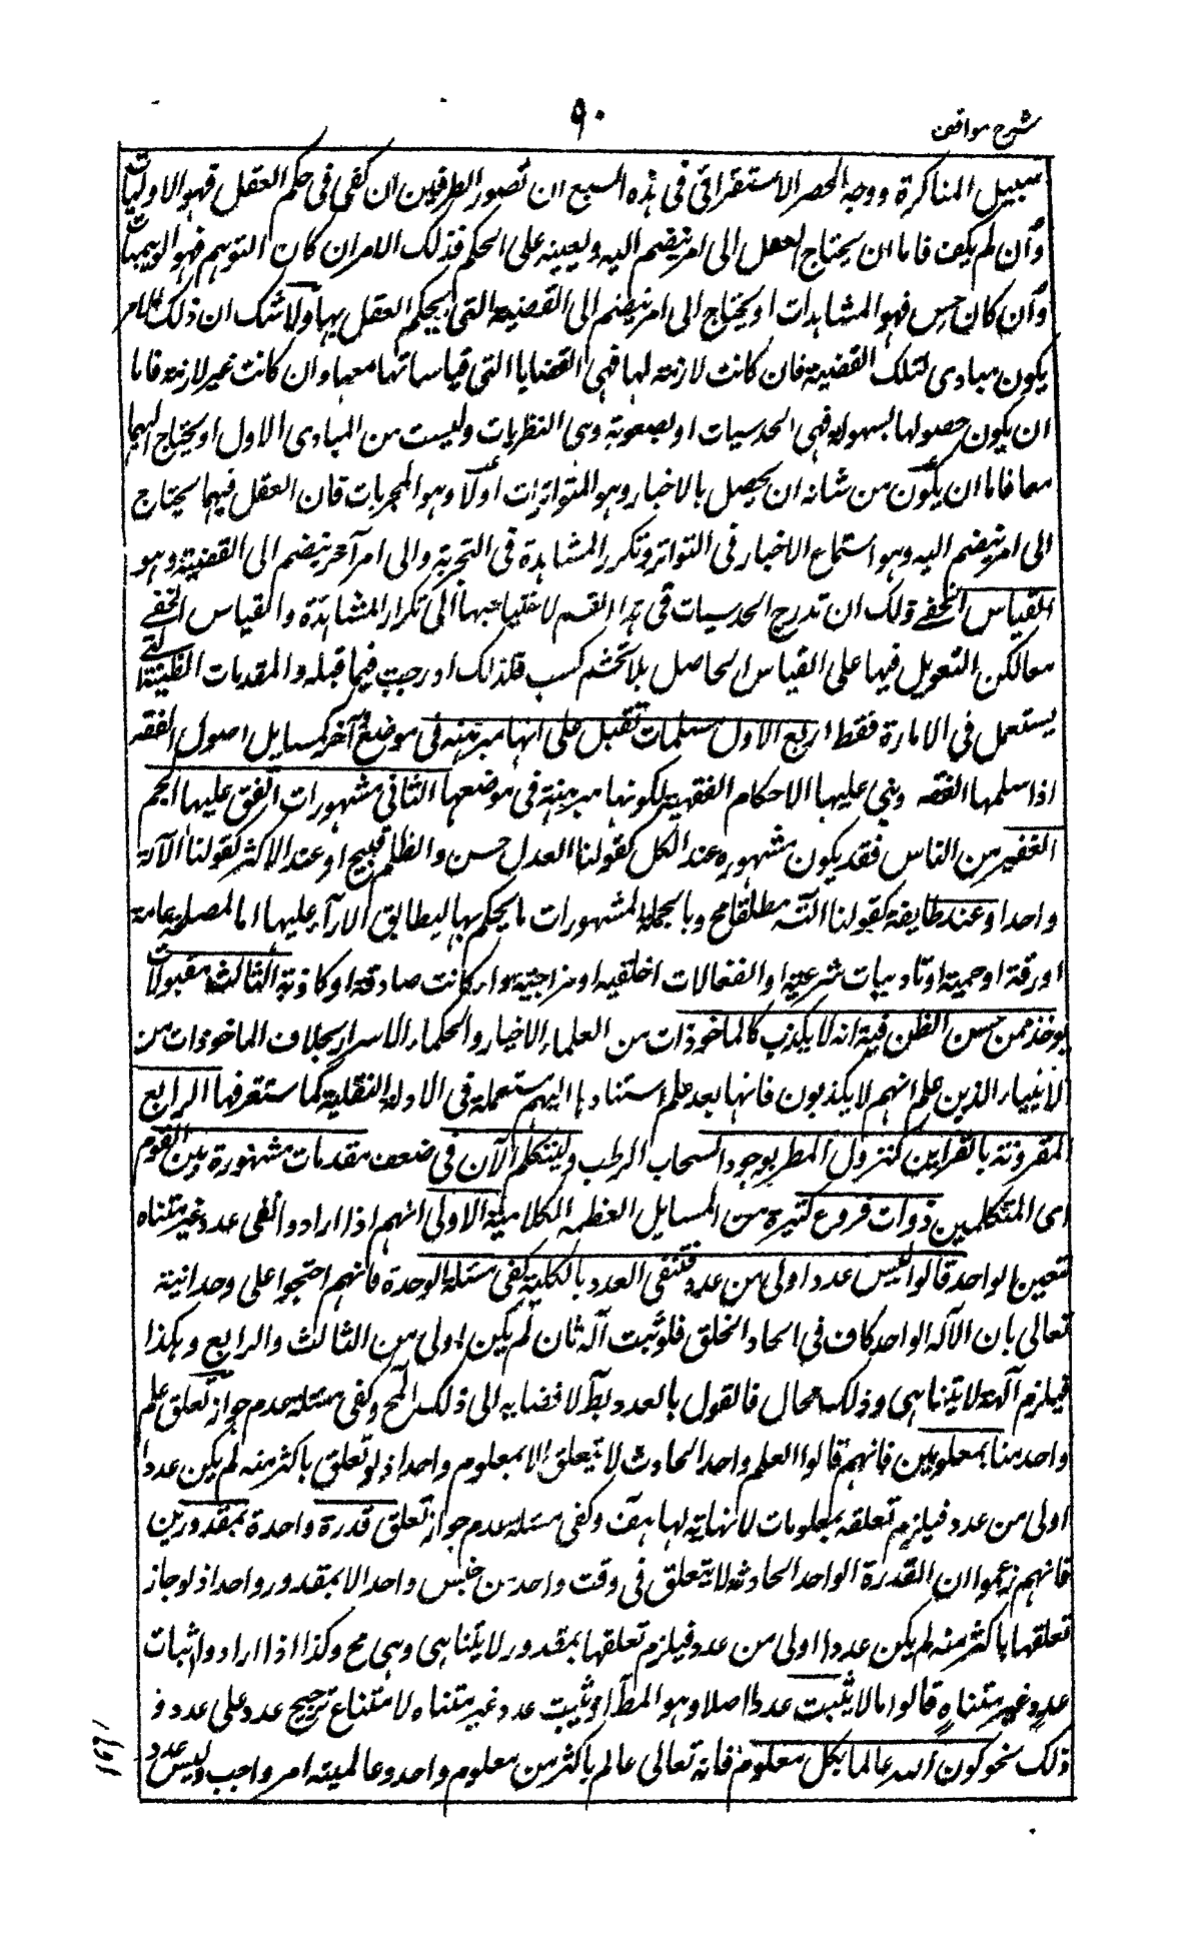 شرح مواقف
٩٠
سبيل المناكرة ووجه الحصر الاستقرائى فى هذه السبع ان تصور الطرفين ان كفى فى حكم العقل فهو الاوليات
وان لم يكف فاما ان يحتاج العقل الى امر ينضم اليه ويعينه على الحكم فذلك الامر ان كان التوهم فهو الوهميات
وان كان حس فهو المشاهدات او يحتاج الى امر ينضم الى القضية التى يحكم العقل بها ولا شك ان ذلك الامر
يكون مبادى لتلك القضية فان كانت لازمة لها فهى القضايا التى قياساتها معها وان كانت غير لازمة فاما
ان يكون حصولها بسهولة فهى الحدسيات او بصعوبة وهى النظريات وليست من المبادى الاول او يحتاج اليهما
معا فاما ان يكون من شانه ان يحصل بالاخبار وهو المتواترات اولا وهو المجربات فان العقل فيهما يحتاج
الى امر ينضم اليه وهو استماع الاخبار فى التواتر وتكرر المشاهدة فى التجربة والى امر آخر ينضم الى القضية وهو
القياس الخفے ولك ان تدرج الحدسيات فى هذا القسم لاحتياجها الى تكرار المشاهدة والقياس الخفے
معا لكن التعويل فيها على القياس الحاصل بلا تجشم كسب فلذلك ادرجت فيما قبله والمقدمات الظنية التے
يستعمل فى الامارة فقط اربع الاول مسلمات تقبل على انها مبرهنه فى موضع آخر كمسايل اصول الفقه
اذا سلمها الفقه وبنى عليها الاحكام الفقهية لكونها مبرهنة فى موضعها الثانى مشهورات اتفق عليها الجم
الغفير من الناس فقد يكون مشهوره عند الكل كقولنا العدل حسن والظلم قبيح او عند الاكثر كقولنا الآله
واحد او عند طايفة كقولنا التسـ مطلقا مح وبالجملة المشهورات ما يحكم بها لتطابق الارآء عليها اما لمصلحة عامة
او رقة او حمية او تاديبات شرعية او انفعالات خلقيه او مزاجية سواء كانت صادقة او كاذبة الثالث مقبولات
يوخذ ممن حسن الظن فيه انه لا يكذب كالماخوذات من العلماء الاخيار والحكماء الابرار بخلاف الماخوذات من
الانبياء الذين علم انهم لا يكذبون فانها بعد علم استنادها اليهم مستعملة فى الادلة النقلية كما ستعرفها الرابع
المقرونة بالقراين كنزول المطر بوجود السحاب الرطب ولنتكلم الآن فى ضعف مقدمات مشهورة بين القوم
اى المتكلمين ذوات فروع كثيرة من المسايل العظمه الكلامية الاولى انهم اذا ارادوا نفى عدد غير متناه
لتعين الواحد قالوا ليس عدد اولى من عدد فنتفى العدد بالكلية كفى مسئلة الوحدة فانهم احتجوا على وحدانيته
تعالى بان الآله الواحد كاف فى ايجاد الخلق فلو ثبت آله ثان لم يكن اولى من الثالث والرابع وهكذا
فيلزم آلهة لا يتناهى وذلك محال فالقول بالعدد بط لافضايه الى ذلك المح وكفى مسئلة عدم جواز تعلق علم
واحد منا بمعلومين فانهم قالوا العلم واحد الحادث لا يتعلق الا بمعلوم واحد اذ لو تعلق باكثر منه لم يكن عدد
اولى من عدد فيلزم تعلقه بمعلومات لا نهاية لها هف وكفى مسئله عدم جواز تعلق قدرة واحدة بمقدورين
فانهم زعموا ان القدرة الواحد الحادثة لا يتعلق فى وقت واحد من جنس واحد الا بمقدور واحد اذ لو جاز
تعلقها باكثر منه لم يكن عدد اولى من عدد فيلزم تعلقها بمقدور لا يتناهى وهى مح وكذا اذا ارادوا اثبات
عدد غير متناه قالوا ما لا يثبت عدد اصلا وهو المط او يثبت عدد غير متناه لامتناع ترجيح عدد على عدد و
ذلك نحو كون الله عالما بكل معلوم فانه تعالى عالم باكثر من معلوم واحد وعالميته امر واجب وليس عدد